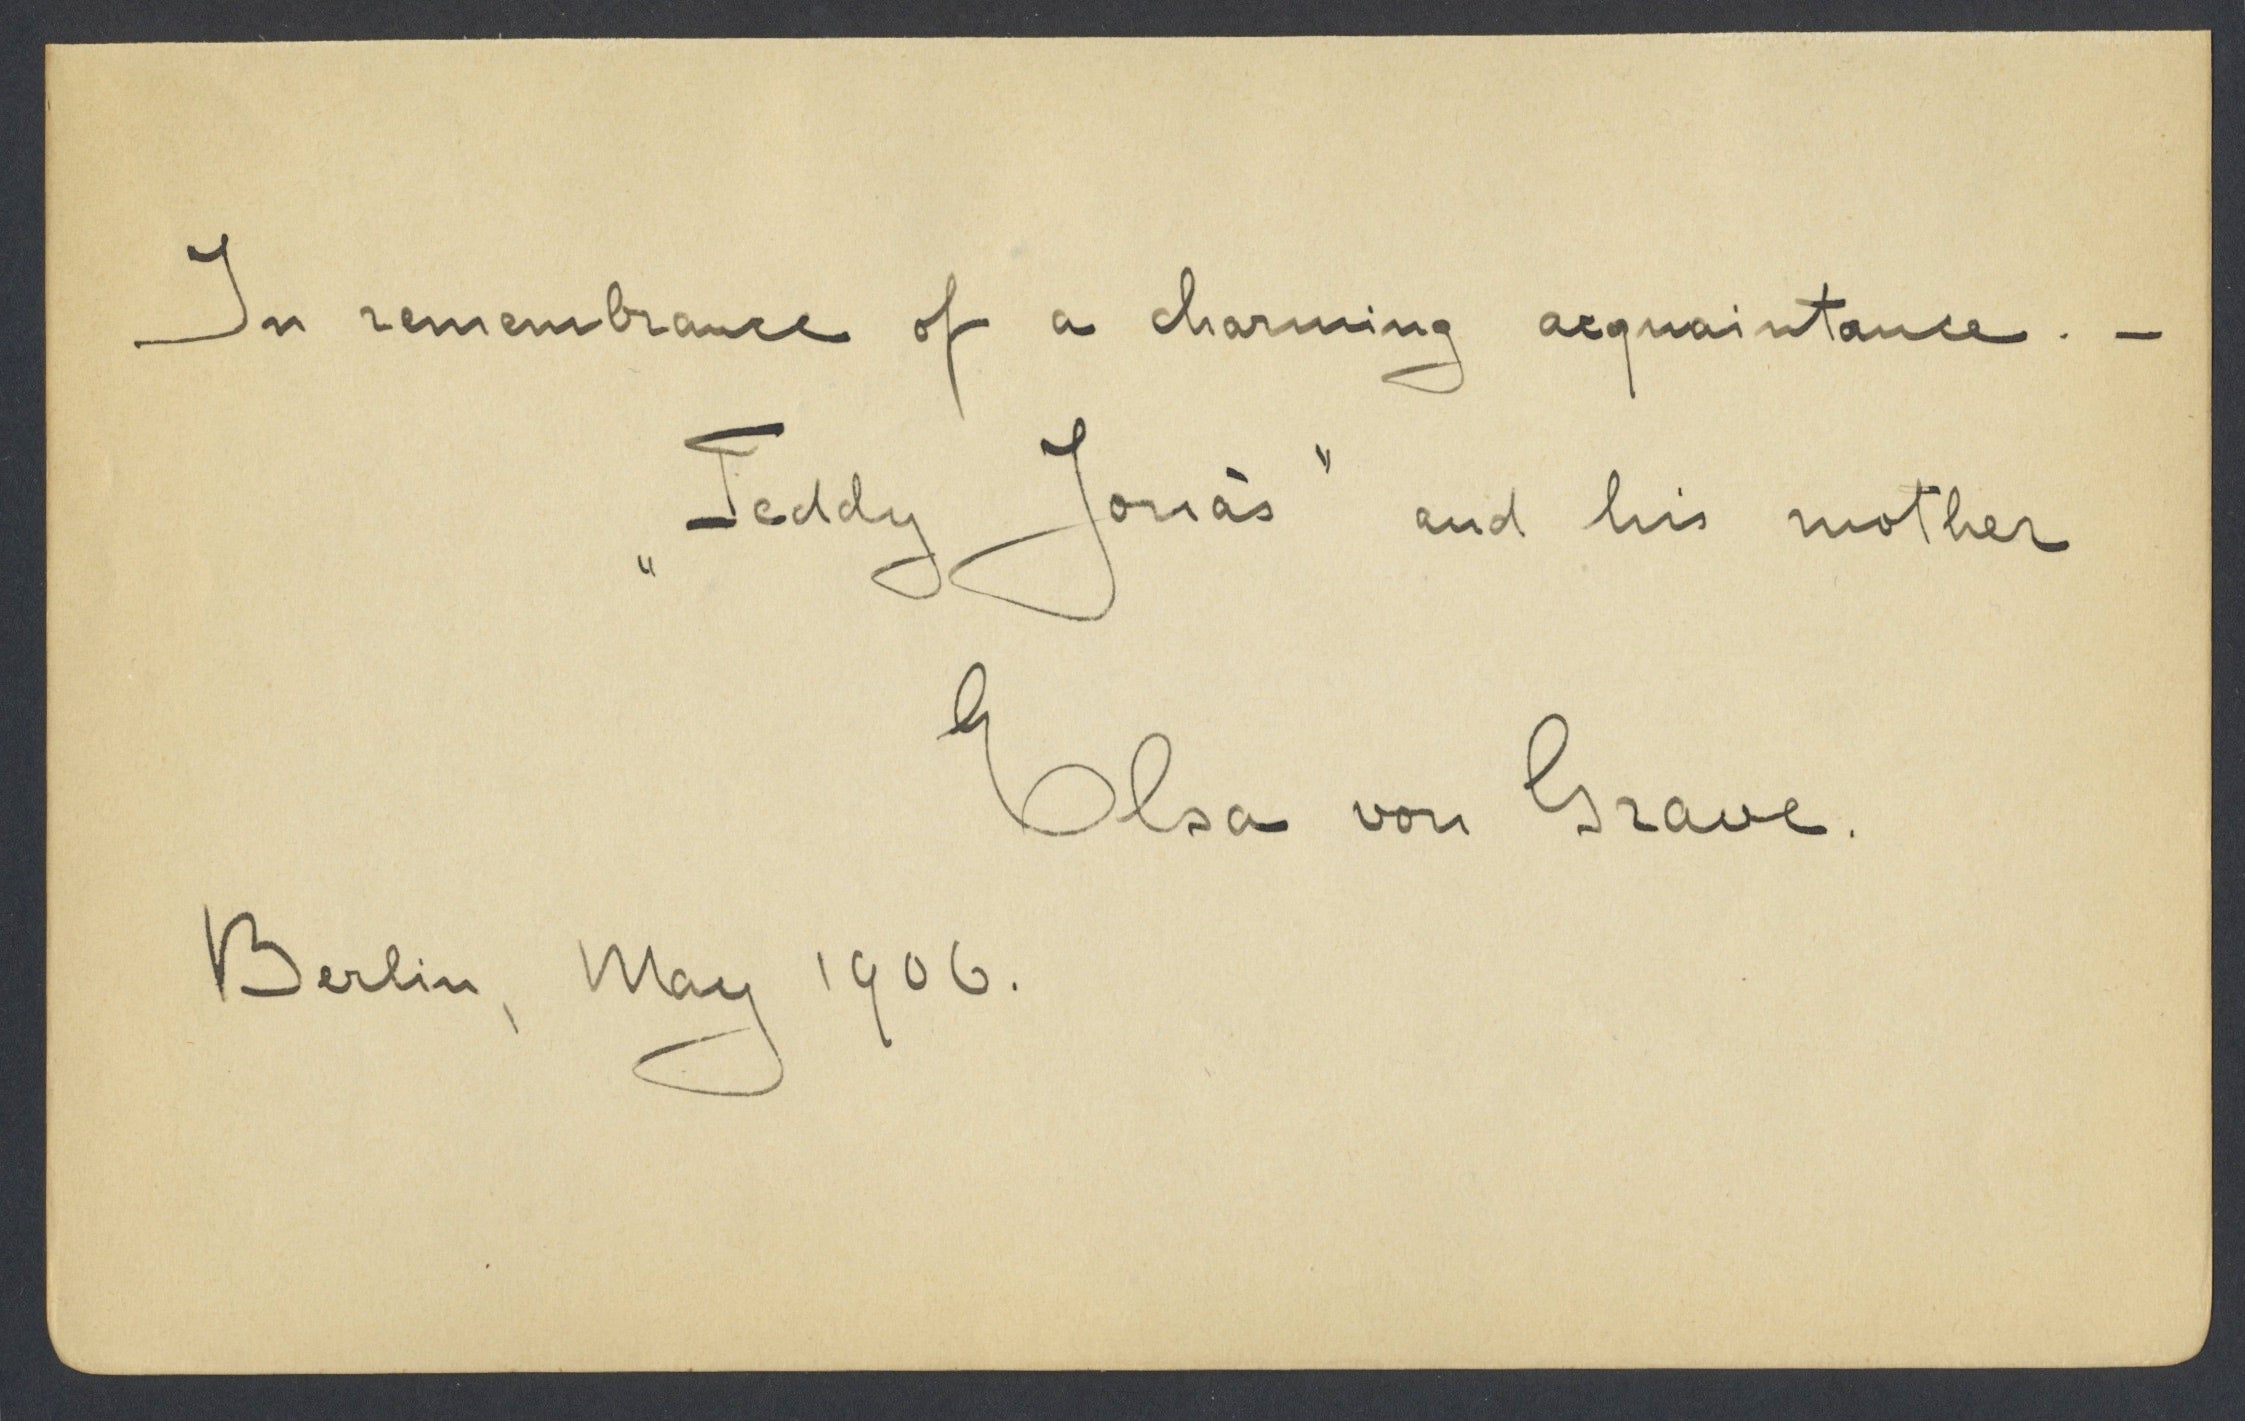 In remembrance of a charming acquaintance. –
„Teddy Jonás" and his mother
Elsa von Grave.
Berlin, May 1906.